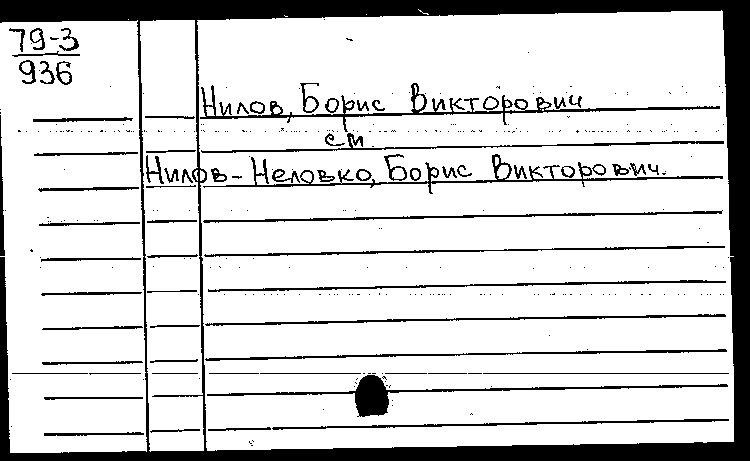 79-3
936
Нилов, Борис Викторович
см
Нилов-Неловко, Борис Викторович.